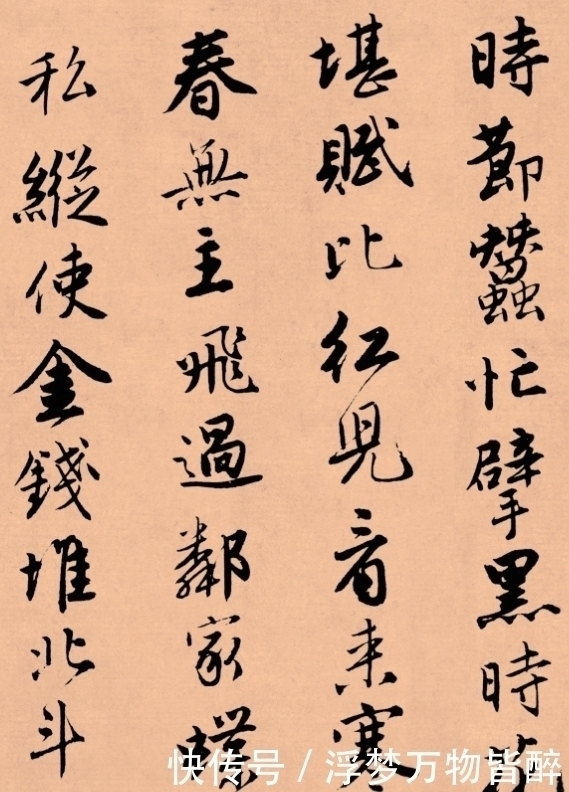 時節蠶忙擘黑時
堪賦比紅兒看來寒
春無主飛過鄰家蝶
私縱使金錢堆北斗
快传号 / 浮梦万物皆醉